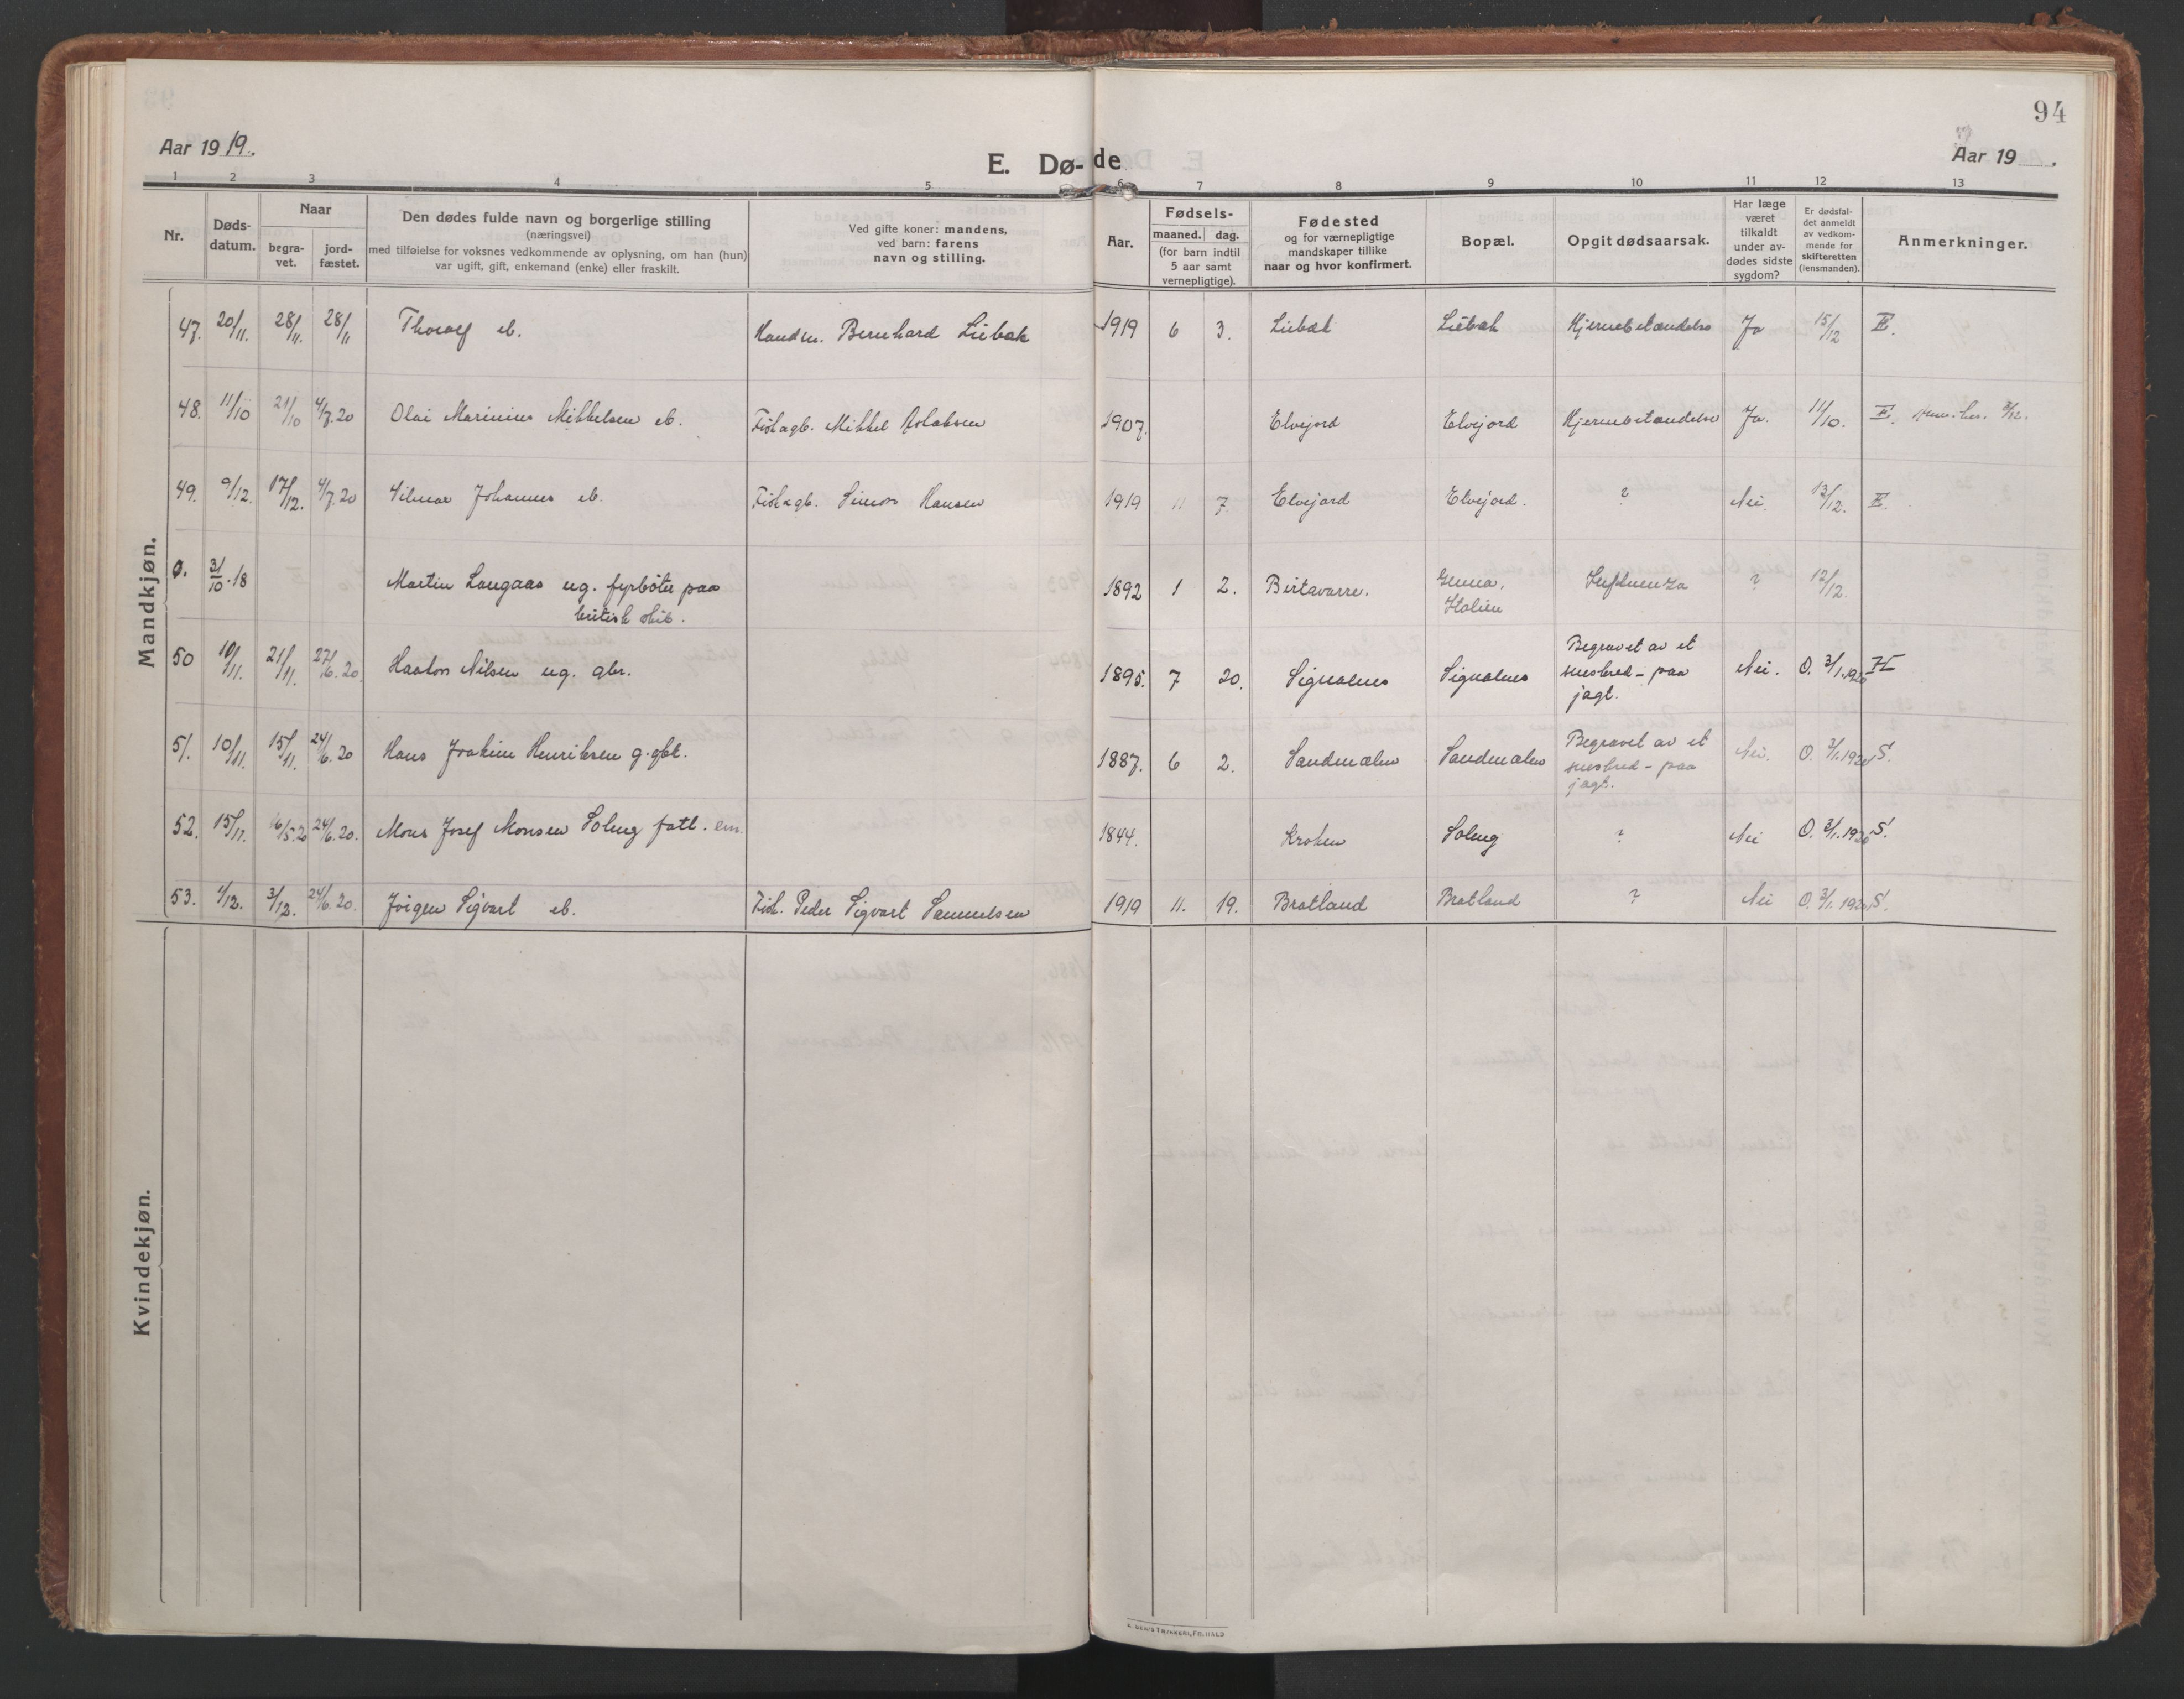 94
Aar 1919.
E. Dø- de
Aar 19 .
1 2 3 4 5 6 7 8 9 10 11 12 13
Nr.
Døds-
datum.
Naar
begra-
vet.
jord-
fæstet.
Den dødes fulde navn og borgerlige stilling
(næringsvei)
med tilføielse for voksnes vedkommende av oplysning, om han (hun)
var ugift, gift, enkemand (enke) eller fraskilt.
Ved gifte koner: mandens,
ved barn: farens
navn og stilling.
Aar.
Fødsels-
maaned. dag.
(for barn indtil
5 aar samt
vernepligtige).
Fødested
og for værnepligtige
mandskaper tillike
naar og hvor konfirmert.
Bopæl.
Opgit dødsaarsak.
Har læge
været
tilkaldt
under av-
dødes sidste
sygdom?
Er dødsfal-
det anmeldt
av vedkom-
mende for
skifteretten
(lensmanden).
Anmerkninger.
Mandkjøn.
47. 20/11. 28/11. 28/11 Thoralf eb. Handm. Bernhard Liebak 1919 6 3. Liebak Liebak Hjernebetændelse Ja 15/12 E.
48. 11/10 21/10 4/7.20 Olai Marinius Mikkelsen eb. Fisk. gb. Mikkel Aslaksen 1907. Elvejord Elvejord Hjernebetændelse Ja. 11/10. E. 3/12.
49. 9/12. 17/12. 4/7.20 Hilmar Johannes eb. Fisk. gb. Simon Hansen 1919 11 7. Elvejord Elvejord. ? Nei. 13/12. E.
0. 31/10.18 Martin Langaas ug. fyrbøter paa 1892 1 2. Birtavarre. Genua, Influenza ? 12/12.
britisk skib. Italien
50 10/11. 21/11. 27/6.20. Haakon Nilsen ug. gbr. 1895. 7 20. Signalnes Signalnes Begravet av et Nei. O. 3/1.1920 H
sneskred - paa
jagt.
51. 10/11. 15/11. 24/6.20 Hans Joakim Henriksen g. gbr. 1887. 6 2. Sandmælen Sandmælen Begravet av et Nei. O. 3/1.1920 S.
sneskred - paa
jagt.
52. 15/12. 16/5.20 24/6.20. Mons Josef Monsen Soleng fatt. em. 1844. Kroken Soleng ? Nei O. 3/1.1920 S.
53. 1/12. 3/12. 24/6.20. Jørgen Sigvart eb. Fisk. Peder Sigvart Samuelsen 1919 11. 19. Bratland Bratland ? Nei O. 3/1.1920 S.
Kvindekjøn.